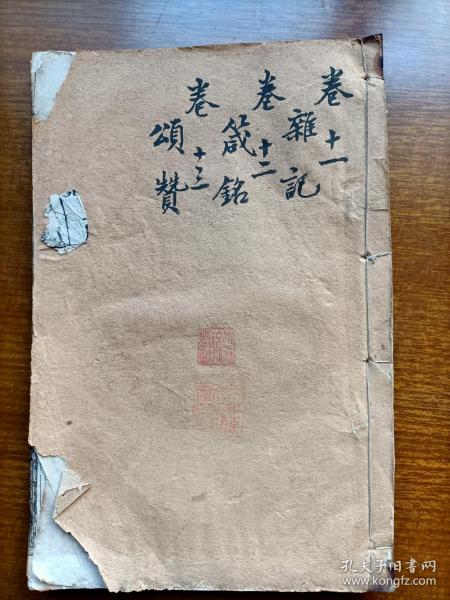 卷十一
雜記
卷十二
箴銘
卷十三
頌贊
孔夫子旧书网
www.kongfz.com